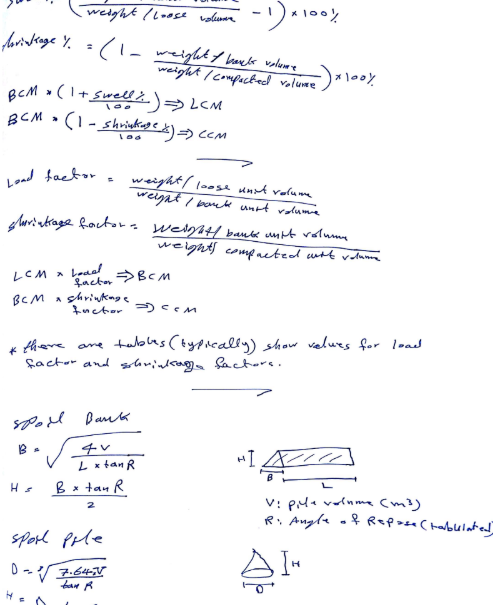 weight / loose volume - 1 ) × 100%
shrinkage % = ( 1 - weight / bank volume
weight / compacted volume ) × 100%
BCM * ( 1 + swell % / 100 ) ⇒ LCM
BCM * ( 1 - shrinkage % / 100 ) ⇒ CCM
Load factor = weight / loose unit volume
weight / bank unit volume
shrinkage factor = weight / bank unit volume
weight / compacted unit volume
LCM × Load factor ⇒ BCM
BCM × shrinkage factor ⇒ CCM
* there are tables (typically) show values for load
factor and shrinkage factors.
spoil Bank
B = √ 4V
L × tan R
H = B × tan R
2
H B L
V: pile volume (m³)
R: Angle of Repose (tabulated)
spoil pile
D = ³√ 7.64V
tan R
H =
H D